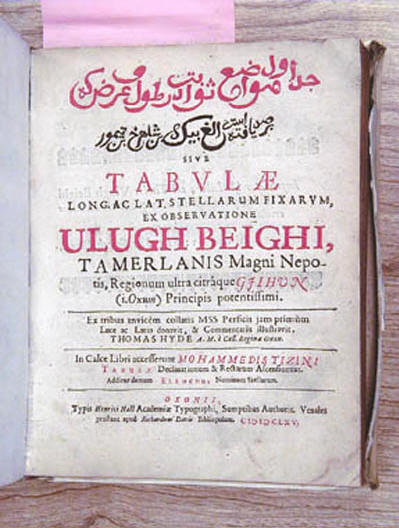 جداول مواضع ثوابت در طول و عرض كه
برصد يافته است الغ بيك بن شاهرخ بن تيمور
SIVE
TABVLÆ
LONG. AC LAT. STELLARUM FIXARVM,
EX OBSERVATIONE
ULUGH BEIGHI,
TAMERLANIS Magni Nepo-
tis, Regionum ultra citráque GJIHUN
(i. Oxum) Principis potentissimi.
Ex tribus invicèm collatis MSS Persicis jam primùm
Luce ac Latio donavit, & Commentariis illustravit,
THOMAS HYDE A. M. è Coll. Reginæ Oxon.
In Calce Libri accesserunt MOHAMMEDIS TIZINI
TABULÆ Declinationum & Rectarum Ascensionum.
Additur demum ELENCHUS Nominum Stellarum.
OXONII,
Typis Henrici Hall Academiæ Typographi, Sumptibus Authoris. Venales
prostant apud Richardum Davis Bibliopolam. CIƆIƆCLXV.